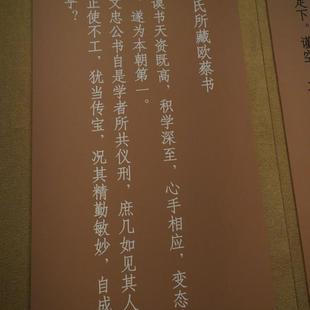 氏所藏欧蔡书
谟书天资既高，积学深至，心手相应，变态
遂为本朝第一。
文忠公书自是学者所共仪刑，庶几如见其人
正使不工，犹当传宝，况其精勤敏妙，自成
乎？
足下。谨空